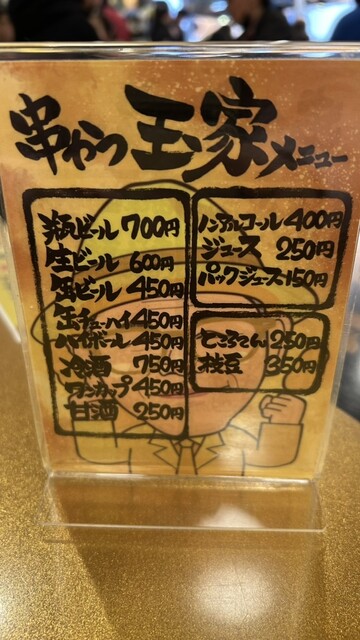 串かつ 玉家 メニュー
瓶ビール 700円
生ビール 600円
缶ビール 450円
缶チューハイ 450円
ハイボール 450円
冷酒 750円
ワンカップ 450円
甘酒 250円
ノンアルコール 400円
ジュース 250円
パックジュース 150円
ところてん 250円
枝豆 350円